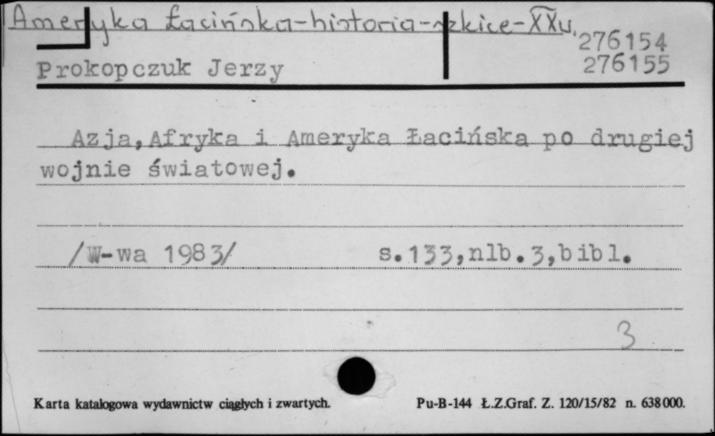 Ameryka Łacińska-historia-szkice-XXw.
276154
Prokopczuk Jerzy 276155
Azja,Afryka i Ameryka Łacińska po drugiej
wojnie światowej.
/W-wa 1983/ s.133,nlb.3,bibl.
3
Karta katalogowa wydawnictw ciągłych i zwartych. Pu-B-144 Ł.Z.Graf. Z. 120/15/82 n. 638000.